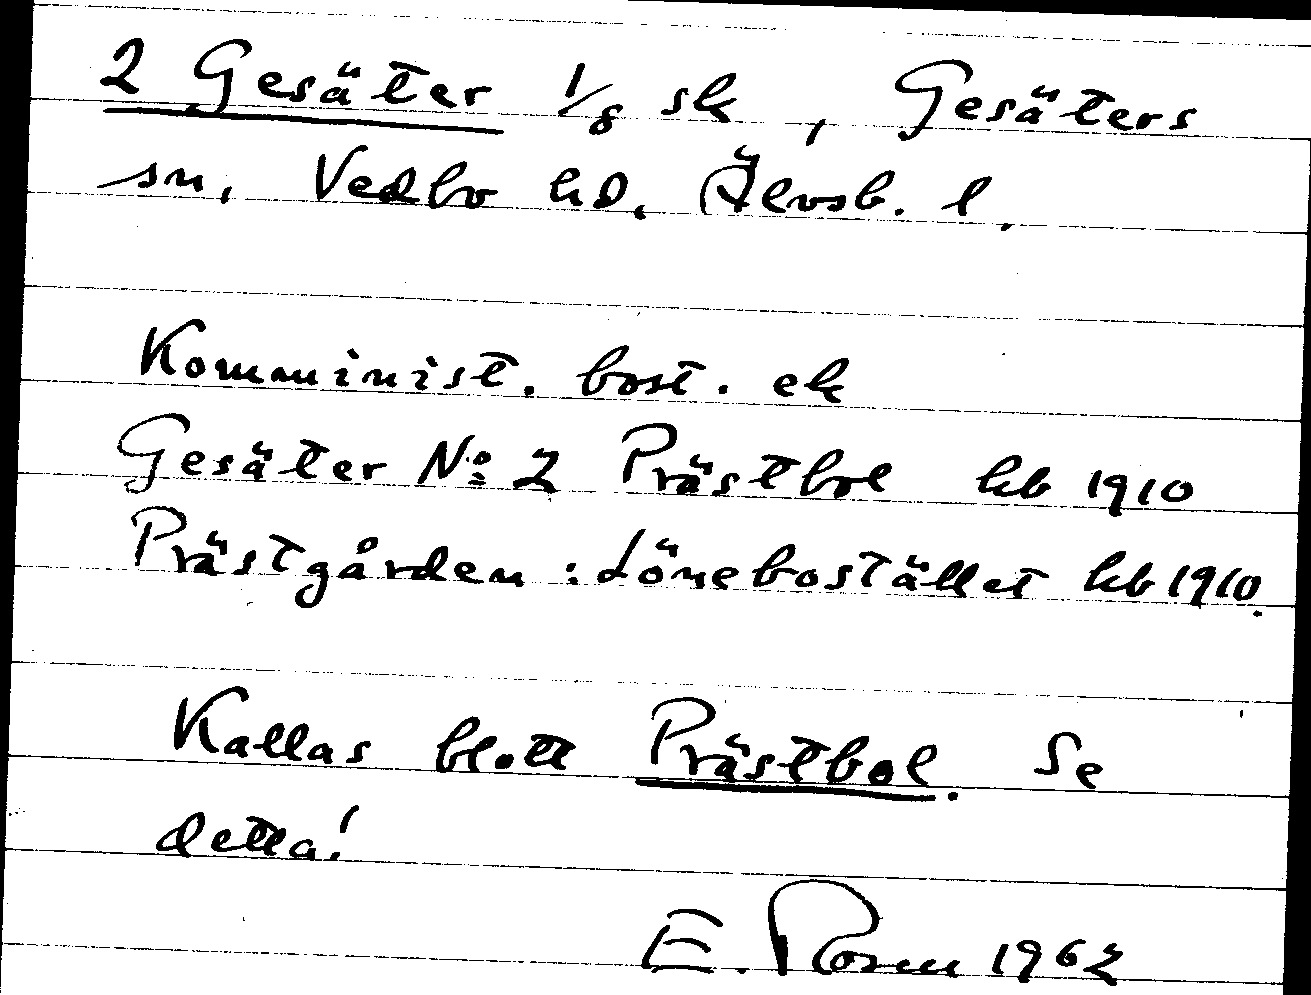 2 Gesäter 1/8 sk, Gesäters
sn, Vedbo hd, Älvsb. l.
Komminist. bost. ek
Gesäter No: 2 Prästbol hb 1910
Prästgården: Lönebostället hb 1910.
Kallas blott Prästbol. Se
detta!
E. Rosell 1962